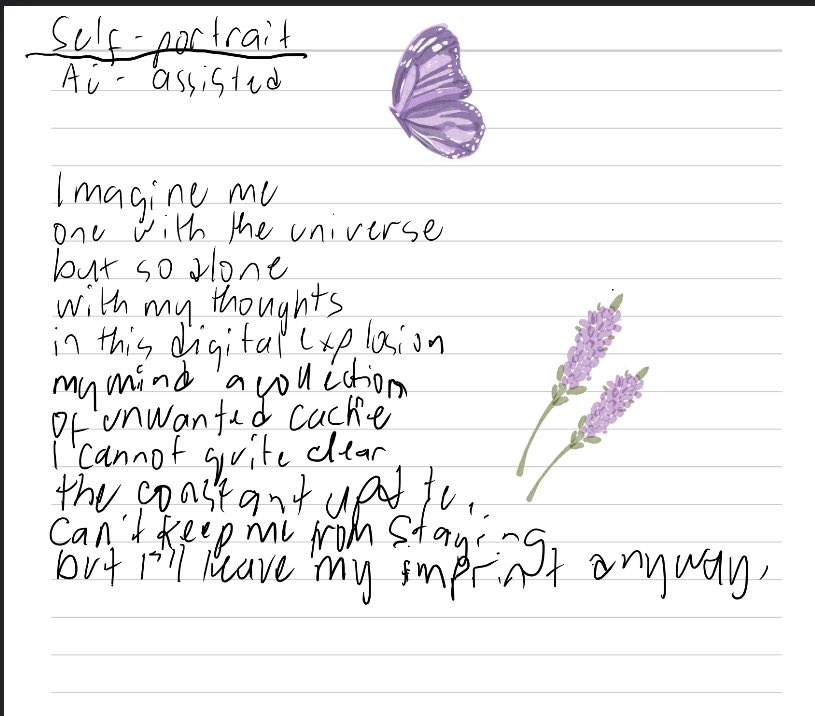 Self-portrait
Ai-assisted
Imagine me
one with the universe
but so alone
with my thoughts
in this digital explosion
my mind a collection
of unwanted cache
I cannot quite clear
the constant update,
can't keep me from staying
but I'll leave my imprint anyway,